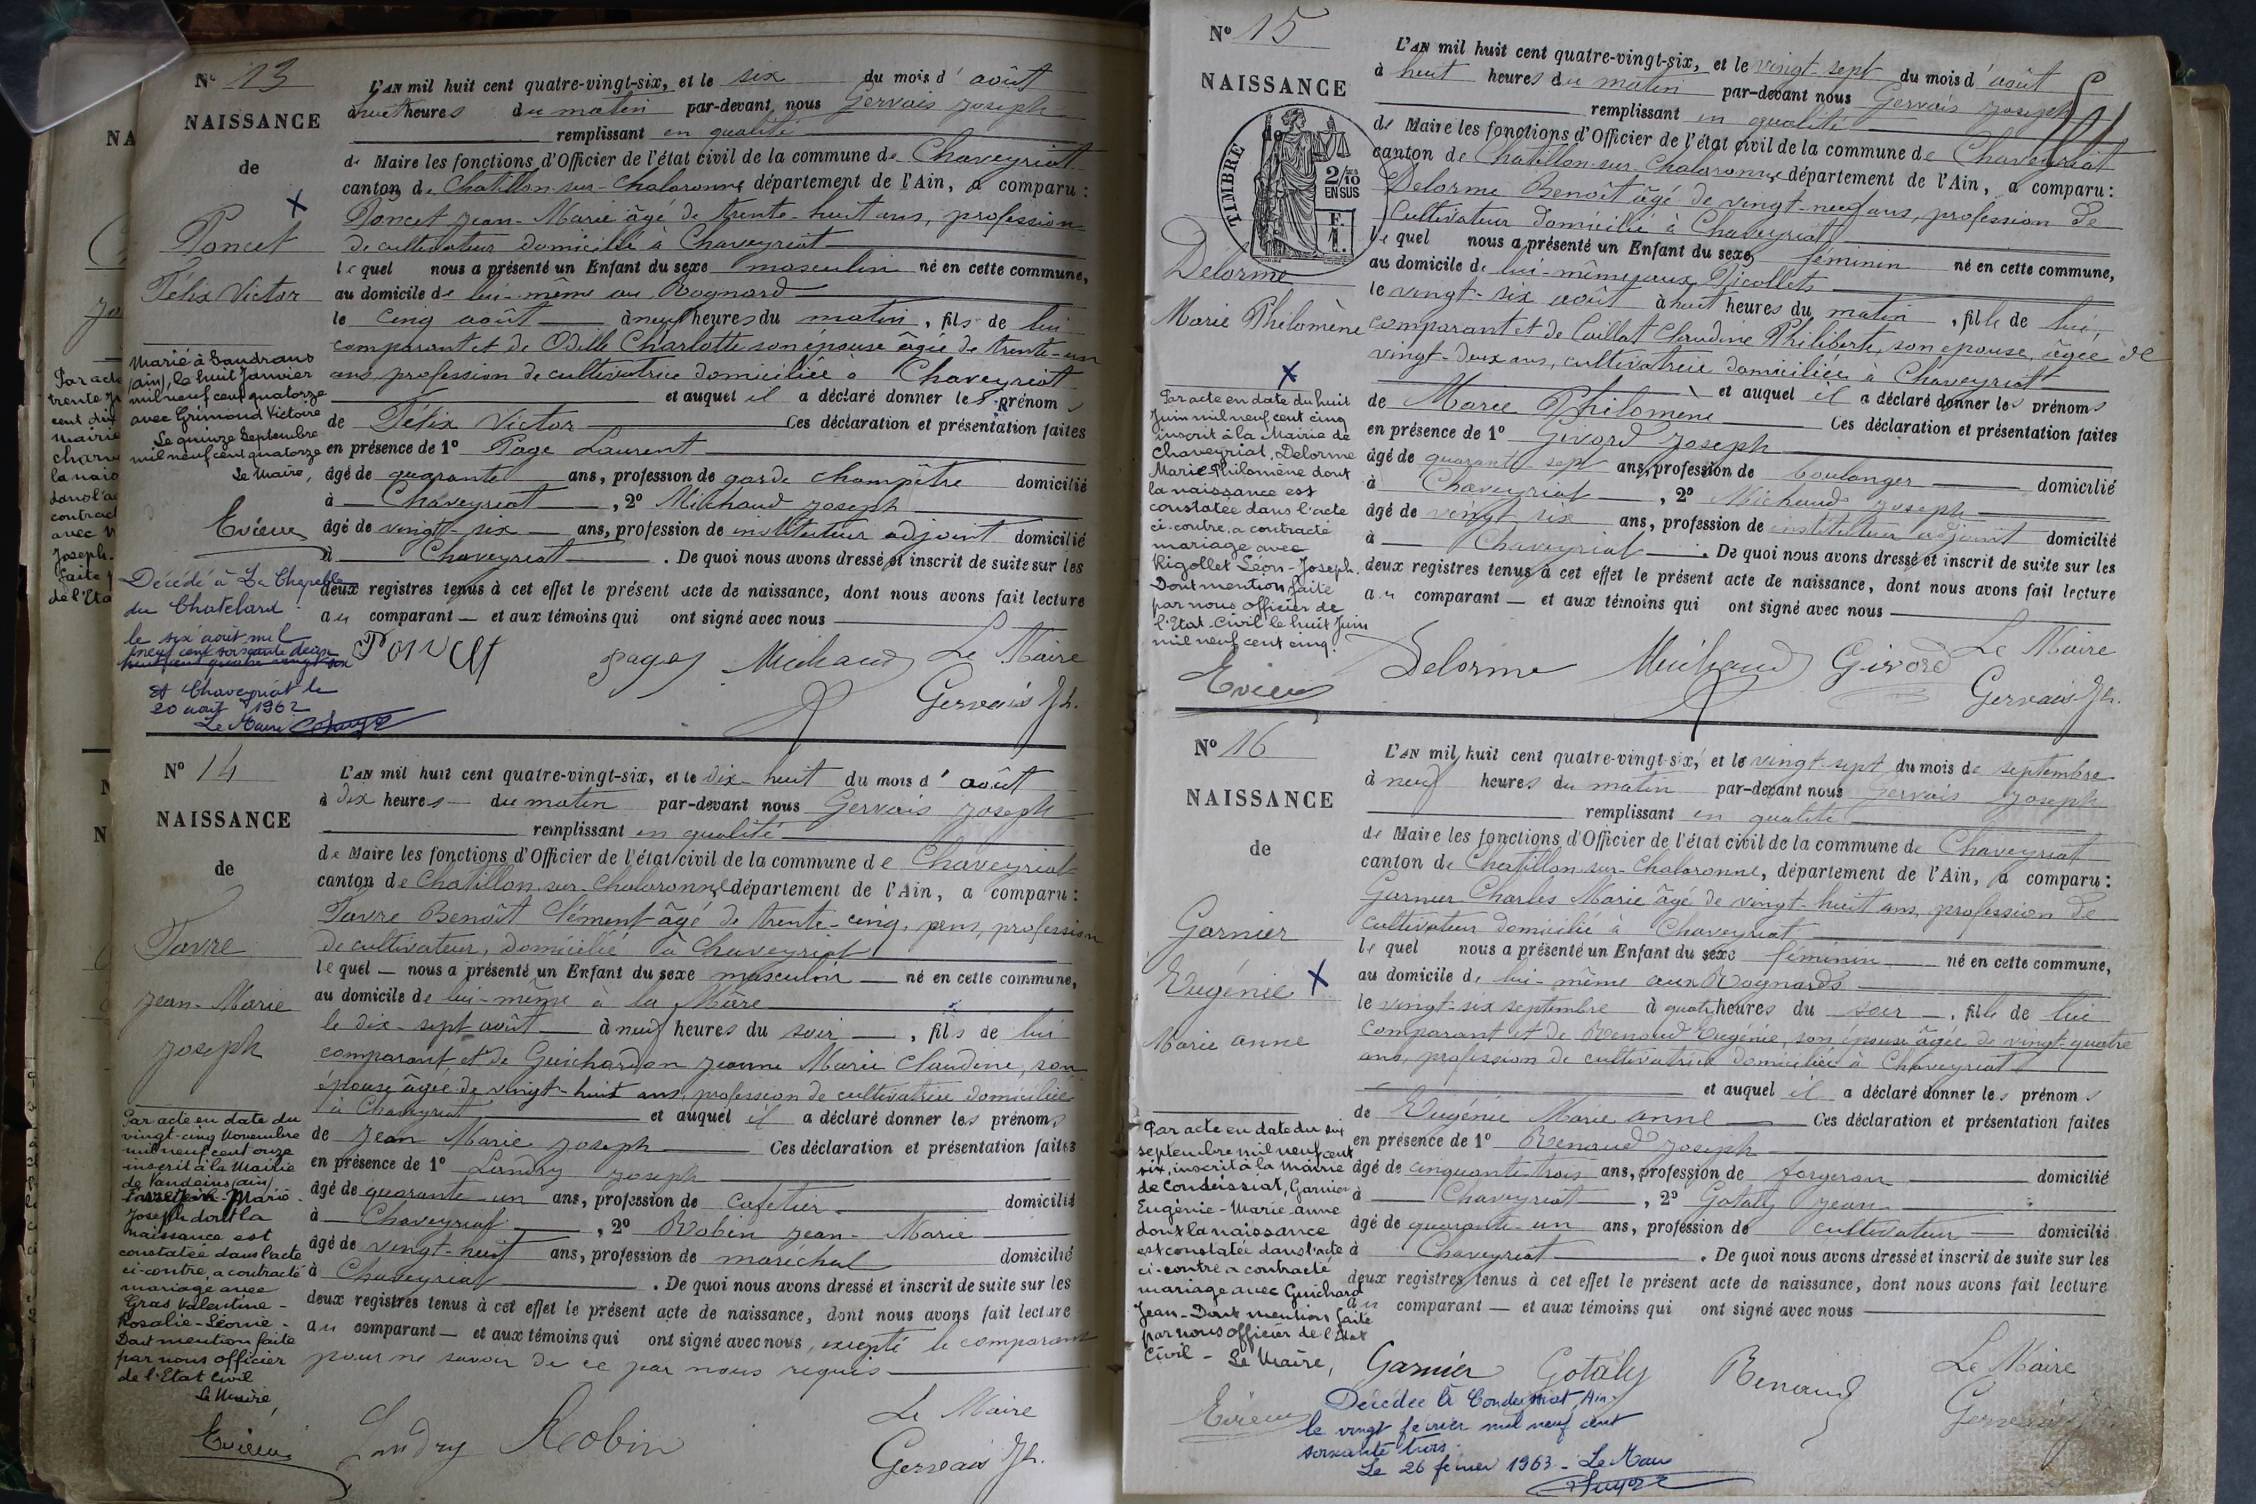 N° 13
NAISSANCE
de
Poncet
Félix Victor
Marié à Sandrans
(ain), le huit Janvier
mil neuf cent quatorze
avec Grimond Victoire
Le quinze Septembre
mil neuf cent quatorze
Le Maire,
Evieux
Décédé à La Chapelle
du Chatelard
le six août mil
neuf cent soixante deux
huit cent quatre vingt six
et Chaveyriat le
20 août 1962
Le Maire
L'AN mil huit cent quatre-vingt-six, et le six du mois d'août
à huit heures du matin par-devant nous Gervais Joseph
remplissant en qualité
de Maire les fonctions d'Officier de l'état civil de la commune de Chaveyriat
canton de Chatillon-sur-Chalaronne département de l'Ain, a comparu :
Poncet Jean-Marie âgé de trente-huit ans, profession
de cultivateur domicilié à Chaveyriat
lequel nous a présenté un Enfant du sexe masculin né en cette commune,
au domicile de lui-même au Rognard
le cinq août à neuf heures du matin, fils de lui
comparant et de Odille Charlotte son épouse âgée de trente-un
ans, profession de cultivatrice domiciliée à Chaveyriat
et auquel il a déclaré donner les prénoms
de Félix Victor Ces déclaration et présentation faites
en présence de 1° Page Laurent
âgé de quarante ans, profession de garde champêtre domicilié
à Chaveyriat, 2° Michaud Joseph
âgé de vingt-six ans, profession de instituteur adjoint domicilié
à Chaveyriat. De quoi nous avons dressé et inscrit de suite sur les
deux registres tenus à cet effet le présent acte de naissance, dont nous avons fait lecture
au comparant et aux témoins qui ont signé avec nous
Poncet Page Michaud Le Maire
Gervais Jh.
N° 14
NAISSANCE
de
Favre
Jean-Marie
Joseph
Par acte en date du
vingt-cinq Novembre
mil neuf cent onze
inscrit à la Mairie
de Vandeins (ain)
Favre Jean-Marie-
Joseph dont la
naissance est
constatée dans l'acte
ci-contre, a contracté
mariage avec
Gras Valentine-
Rosalie-Léonie-
Dont mention faite
par nous officier
de l'Etat Civil
Le Maire,
Evieux
L'AN mil huit cent quatre-vingt-six, et le dix-huit du mois d'août
à dix heures du matin par-devant nous Gervais Joseph
remplissant en qualité
de Maire les fonctions d'Officier de l'état civil de la commune de Chaveyriat
canton de Chatillon-sur-Chalaronne département de l'Ain, a comparu :
Favre Benoît Clément âgé de trente-cinq ans, profession
de cultivateur, domicilié à Chaveyriat
lequel nous a présenté un Enfant du sexe masculin né en cette commune,
au domicile de lui-même à la Mare
le dix-sept août à neuf heures du soir, fils de lui
comparant et de Guichardon Jeanne Marie Claudine, son
épouse âgée de vingt-huit ans, profession de cultivatrice domiciliée
à Chaveyriat et auquel il a déclaré donner les prénoms
de Jean Marie Joseph Ces déclaration et présentation faites
en présence de 1° Landry Joseph
âgé de quarante-un ans, profession de cafetier domicilié
à Chaveyriat, 2° Robin Jean-Marie
âgé de vingt-huit ans, profession de maréchal domicilié
à Chaveyriat. De quoi nous avons dressé et inscrit de suite sur les
deux registres tenus à cet effet le présent acte de naissance, dont nous avons fait lecture
au comparant et aux témoins qui ont signé avec nous, excepté le comparant
pour ne savoir de ce par nous requis
Landry Robin Le Maire
Gervais Jh.
N° 15
NAISSANCE
de
TIMBRE
2/10
EN SUS
F.
1.
Delorme
Marie Philomène
Par acte en date du huit
Juin mil neuf cent cinq
inscrit à la Mairie de
Chaveyriat, Delorme
Marie-Philomène dont
la naissance est
constatée dans l'acte
ci-contre, a contracté
mariage avec
Rigollet Léon-Joseph.
Dont mention faite
par nous officier de
l'Etat-Civil le huit Juin
mil neuf cent cinq.
Evieux
L'AN mil huit cent quatre-vingt-six, et le vingt-sept du mois d'août
à huit heures du matin par-devant nous Gervais Joseph
remplissant en qualité
de Maire les fonctions d'Officier de l'état civil de la commune de Chaveyriat
canton de Chatillon-sur-Chalaronne département de l'Ain, a comparu :
Delorme Benoît âgé de vingt-neuf ans, profession de
cultivateur domicilié à Chaveyriat
lequel nous a présenté un Enfant du sexe féminin né en cette commune,
au domicile de lui-même aux Nicollets
le vingt-six août à huit heures du matin, fille de lui,
comparant et de Caillat Claudine Philiberte, son épouse, âgée de
vingt-deux ans, cultivatrice domiciliée à Chaveyriat
et auquel il a déclaré donner les prénoms
de Marie Philomène Ces déclaration et présentation faites
en présence de 1° Givord Joseph
âgé de quarante-sept ans, profession de boulanger domicilié
à Chaveyriat, 2° Michaud Joseph
âgé de vingt six ans, profession de instituteur adjoint domicilié
à Chaveyriat. De quoi nous avons dressé et inscrit de suite sur les
deux registres tenus à cet effet le présent acte de naissance, dont nous avons fait lecture
au comparant et aux témoins qui ont signé avec nous
Delorme Michaud Givord Le Maire
Gervais Jh.
N° 16
NAISSANCE
de
Garnier
Eugénie
Marie anne
Par acte en date du six
septembre mil neuf cent
six, inscrit à la mairie
de Condeissiat, Garnier
Eugénie-Marie-anne
dont la naissance
est constatée dans l'acte
ci-contre a contracté
mariage avec Guichard
Jean-Dont mention faite
par nous officier de l'Etat
Civil - Le Maire,
Evieux
L'AN mil huit cent quatre-vingt-six, et le vingt-sept du mois de septembre
à neuf heures du matin par-devant nous Gervais Joseph
remplissant en qualité
de Maire les fonctions d'Officier de l'état civil de la commune de Chaveyriat
canton de Chatillon-sur-Chalaronne, département de l'Ain, a comparu :
Garnier Charles Marie âgé de vingt-huit ans, profession de
cultivateur domicilié à Chaveyriat
lequel nous a présenté un Enfant du sexe féminin né en cette commune,
au domicile de lui-même aux Rognards
le vingt-six septembre à quatre heures du soir, fille de lui
comparant et de Renaud Eugénie, son épouse âgée de vingt-quatre
ans, profession de cultivatrice domiciliée à Chaveyriat
et auquel il a déclaré donner les prénoms
de Eugénie Marie anne Ces déclaration et présentation faites
en présence de 1° Renaud Joseph
âgé de cinquante trois ans, profession de forgeron domicilié
à Chaveyriat, 2° Gotaly Jean
âgé de quarante-un ans, profession de cultivateur domicilié
à Chaveyriat. De quoi nous avons dressé et inscrit de suite sur les
deux registres tenus à cet effet le présent acte de naissance, dont nous avons fait lecture
au comparant et aux témoins qui ont signé avec nous
Garnier Gotaly Renaud Le Maire
Gervais Jh.
Décédée à Condeissiat, Ain
le vingt février mil neuf cent
soixante trois.
Le 26 février 1963 - Le Maire